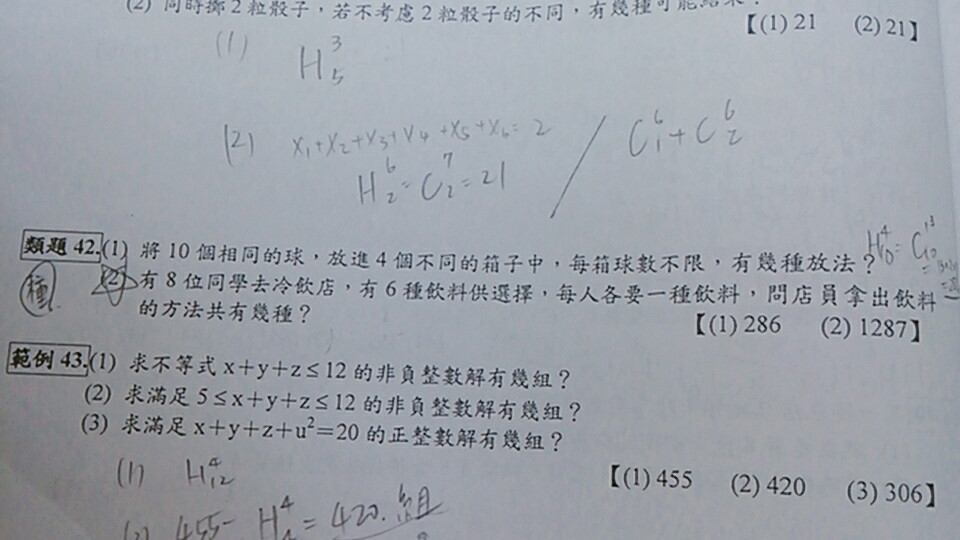 (2) 同時擲2粒骰子，若不考慮2粒骰子的不同，有幾種可能結果？
【(1) 21 (2) 21】
(1) H³₅
(2) x₁+x₂+x₃+x₄+x₅+x₆=2 / C⁶₁+C⁶₂
H⁶₂=C⁷₂=21
類題 42.(1) 將 10 個相同的球，放進 4 個不同的箱子中，每箱球數不限，有幾種放法？ H⁴₁₀=C¹³₁₀
種 (2) 有 8 位同學去冷飲店，有 6 種飲料供選擇，每人各要一種飲料，問店員拿出飲料
的方法共有幾種？ 【(1) 286 (2) 1287】
範例 43.(1) 求不等式 x+y+z≤12 的非負整數解有幾組？
(2) 求滿足 5≤x+y+z≤12 的非負整數解有幾組？
(3) 求滿足 x+y+z+u²=20 的正整數解有幾組？
(1) H⁴₁₂ 【(1) 455 (2) 420 (3) 306】
(2) 455-H⁴₄=420.組